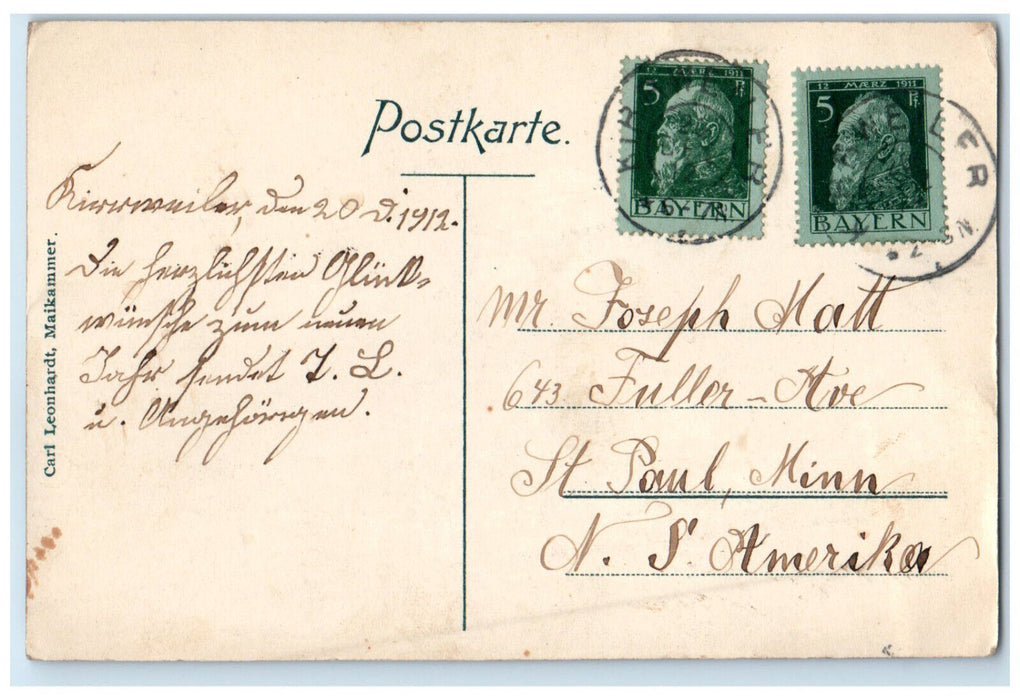 Postkarte.
5 12 MÆRZ 1911 Pf.
BAYERN
5 12 MÆRZ 1911 Pf.
BAYERN
Kirrweiler, den 20 D. 1912.
Die herzlichsten Glück-
wünsche zum neuen
Jahr sendet J. L.
u. Angehörigen.
Carl Leonhardt, Maikammer.
Mr. Joseph Matt
643 Fuller-Ave
St Paul, Minn
N. S. Amerika